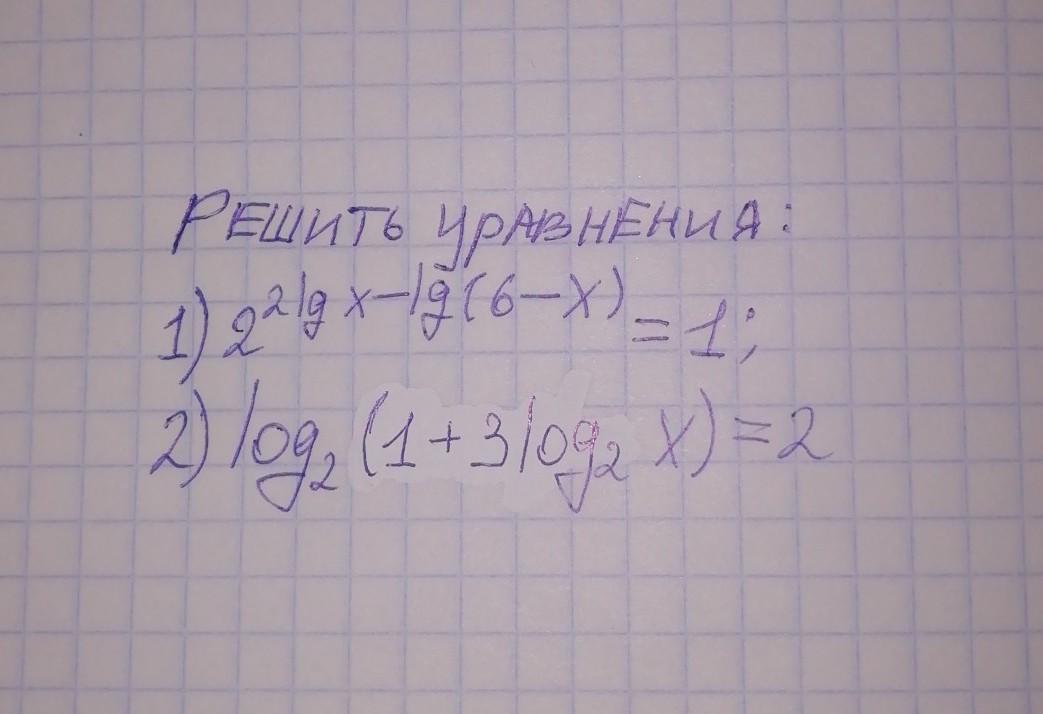 РЕШИТЬ УРАВНЕНИЯ:
1) 2^{2lg x - lg(6 - x)} = 1;
2) log₂ (1 + 3log₂ x) = 2